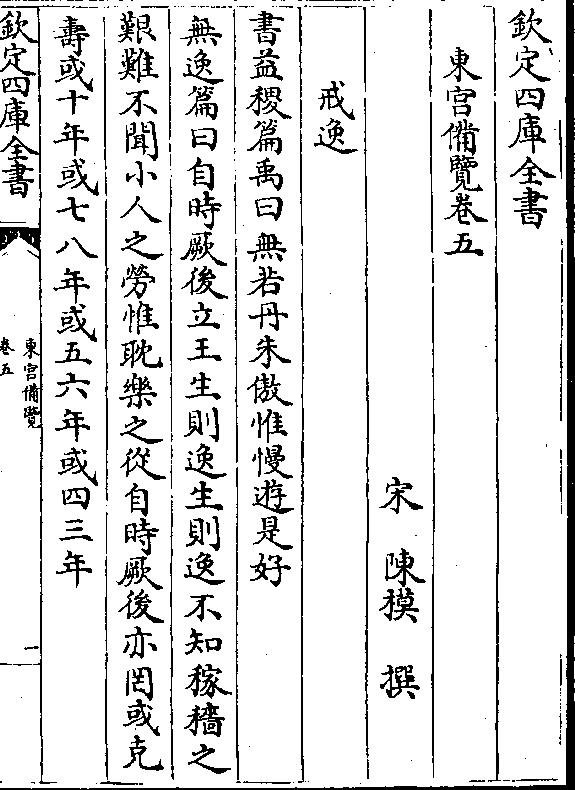 欽定四庫全書
東宮備覽卷五
宋 陳模 撰
戒逸
書益稷篇禹曰無若丹朱傲惟慢遊是好
無逸篇曰自時厥後立王生則逸生則逸不知稼穡之
艱難不聞小人之勞惟耽樂之從自時厥後亦罔或克
壽或十年或七八年或五六年或四三年
欽定四庫全書
東宮備覽
卷五
一